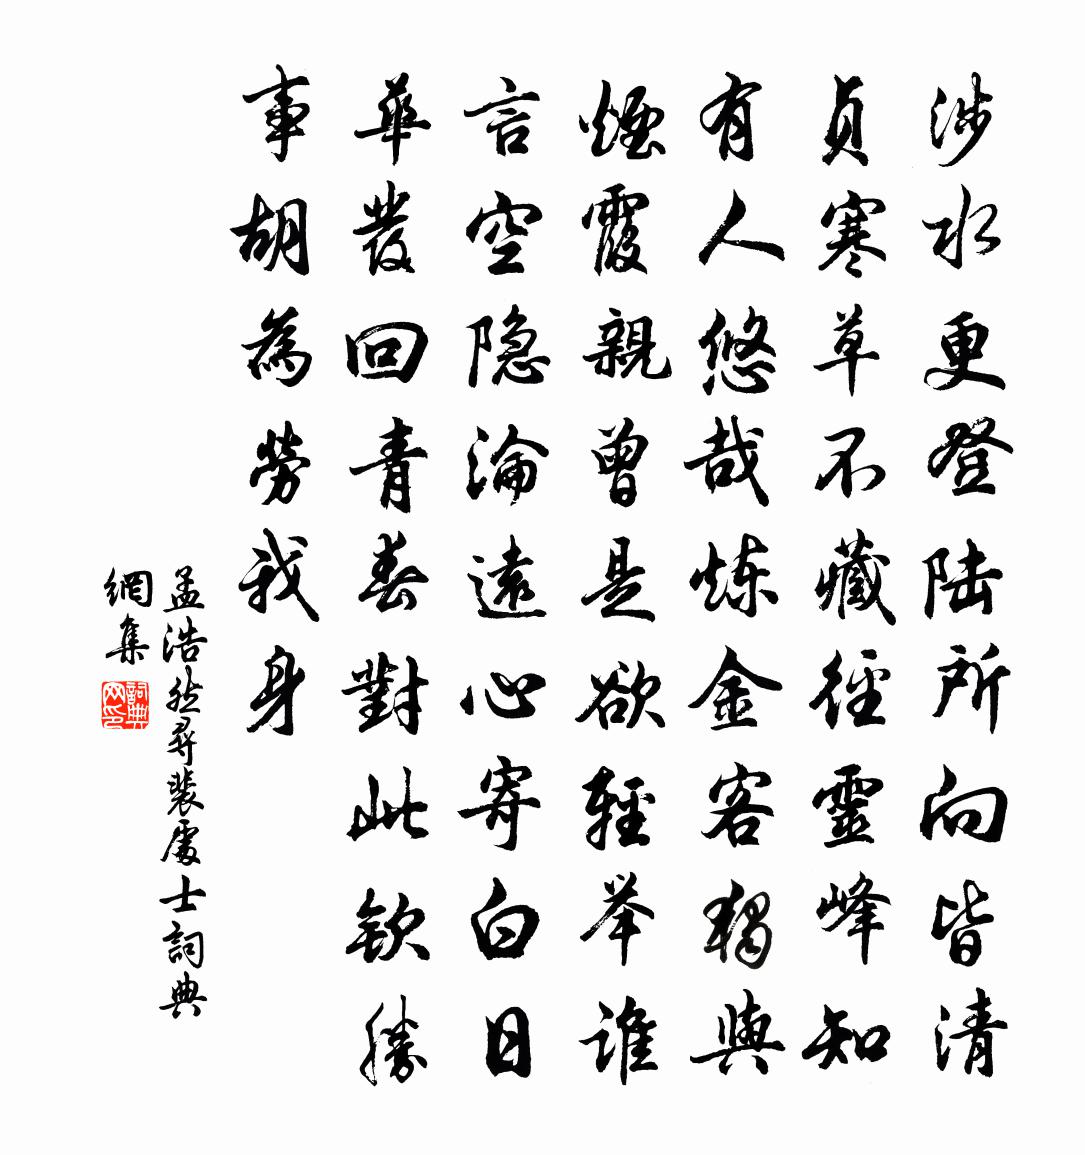 涉水更登陆所向皆清
貞寒草不藏徑靈峰知
有人悠哉炼金客獨與
煙霞親曾是欲輕举谁
言空隐淪遠心寄白日
華發回青春對此欽勝
事胡為勞我身
孟浩然尋裴處士詞典
網集
詞典網印